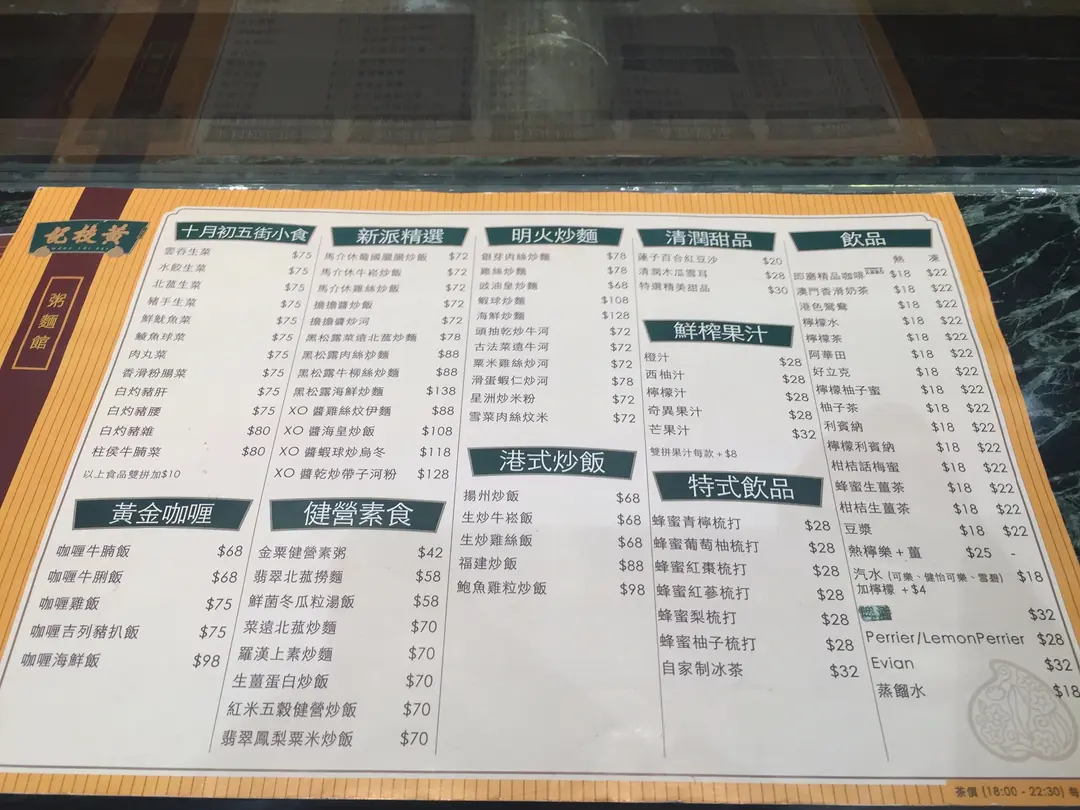 黃枝記
WONG CHI KEI
粥麵館
十月初五街小食
雲吞生菜 $75
水餃生菜 $75
北菰生菜 $75
豬手生菜 $75
鮮魷魚菜 $75
鯪魚球菜 $75
肉丸菜 $75
香滑粉腸菜 $75
白灼豬肝 $75
白灼豬腰 $75
白灼豬雜 $80
柱侯牛腩菜 $80
以上食品雙拼加$10
黃金咖喱
咖喱牛腩飯 $68
咖喱牛脷飯 $68
咖喱雞飯 $75
咖喱吉列豬扒飯 $75
咖喱海鮮飯 $98
新派精選
馬介休葡國臘腸炒飯 $72
馬介休牛崧炒飯 $72
馬介休雞絲炒飯 $72
擔擔醬炒飯 $72
擔擔醬炒河 $72
黑松露菜遠北菰炒麵 $78
黑松露肉絲炒麵 $88
黑松露牛柳絲炒麵 $88
黑松露海鮮炒麵 $138
XO 醬雞絲炆伊麵 $88
XO 醬海皇炒飯 $108
XO 醬蝦球炒烏冬 $118
XO 醬乾炒帶子河粉 $128
健營素食
金粟健營素粥 $42
翡翠北菰撈麵 $58
鮮菌冬瓜粒湯飯 $58
菜遠北菰炒麵 $70
羅漢上素炒麵 $70
生薑蛋白炒飯 $70
紅米五穀健營炒飯 $70
翡翠鳳梨粟米炒飯 $70
明火炒麵
銀芽肉絲炒麵 $78
雞絲炒麵 $78
豉油皇炒麵 $68
蝦球炒麵 $108
海鮮炒麵 $128
頭抽乾炒牛河 $72
古法菜遠牛河 $72
粟米雞絲炒河 $72
滑蛋蝦仁炒河 $78
星洲炒米粉 $72
雪菜肉絲炆米 $72
港式炒飯
揚州炒飯 $68
生炒牛崧飯 $68
生炒雞絲飯 $68
福建炒飯 $88
鮑魚雞粒炒飯 $98
清潤甜品
蓮子百合紅豆沙 $20
清潤木瓜雪耳 $28
特選精美甜品 $30
鮮榨果汁
橙汁 $28
西柚汁 $28
檸檬汁 $28
奇異果汁 $28
芒果汁 $32
雙拼果汁每款 + $8
特式飲品
蜂蜜青檸梳打 $28
蜂蜜葡萄柚梳打 $28
蜂蜜紅棗梳打 $28
蜂蜜紅蔘梳打 $28
蜂蜜梨梳打 $28
蜂蜜柚子梳打 $28
自家制冰茶 $32
飲品
熱 凍
即磨精品咖啡 $18 $22
澳門香滑奶茶 $18 $22
港色鴛鴦 $18 $22
檸檬水 $18 $22
檸檬茶 $18 $22
阿華田 $18 $22
好立克 $18 $22
檸檬柚子蜜 $18 $22
柚子茶 $18 $22
利賓納 $18 $22
檸檬利賓納 $18 $22
柑桔話梅蜜 $18 $22
蜂蜜生薑茶 $18 $22
柑桔生薑茶 $18 $22
豆漿 $18 $22
熱檸樂 + 薑 $25 -
汽水 (可樂、健怡可樂、雪碧) $18
加檸檬 + $4
$32
Perrier/LemonPerrier $28
Evian $32
蒸餾水 $18
茶價 (18:00 - 22:30) 每